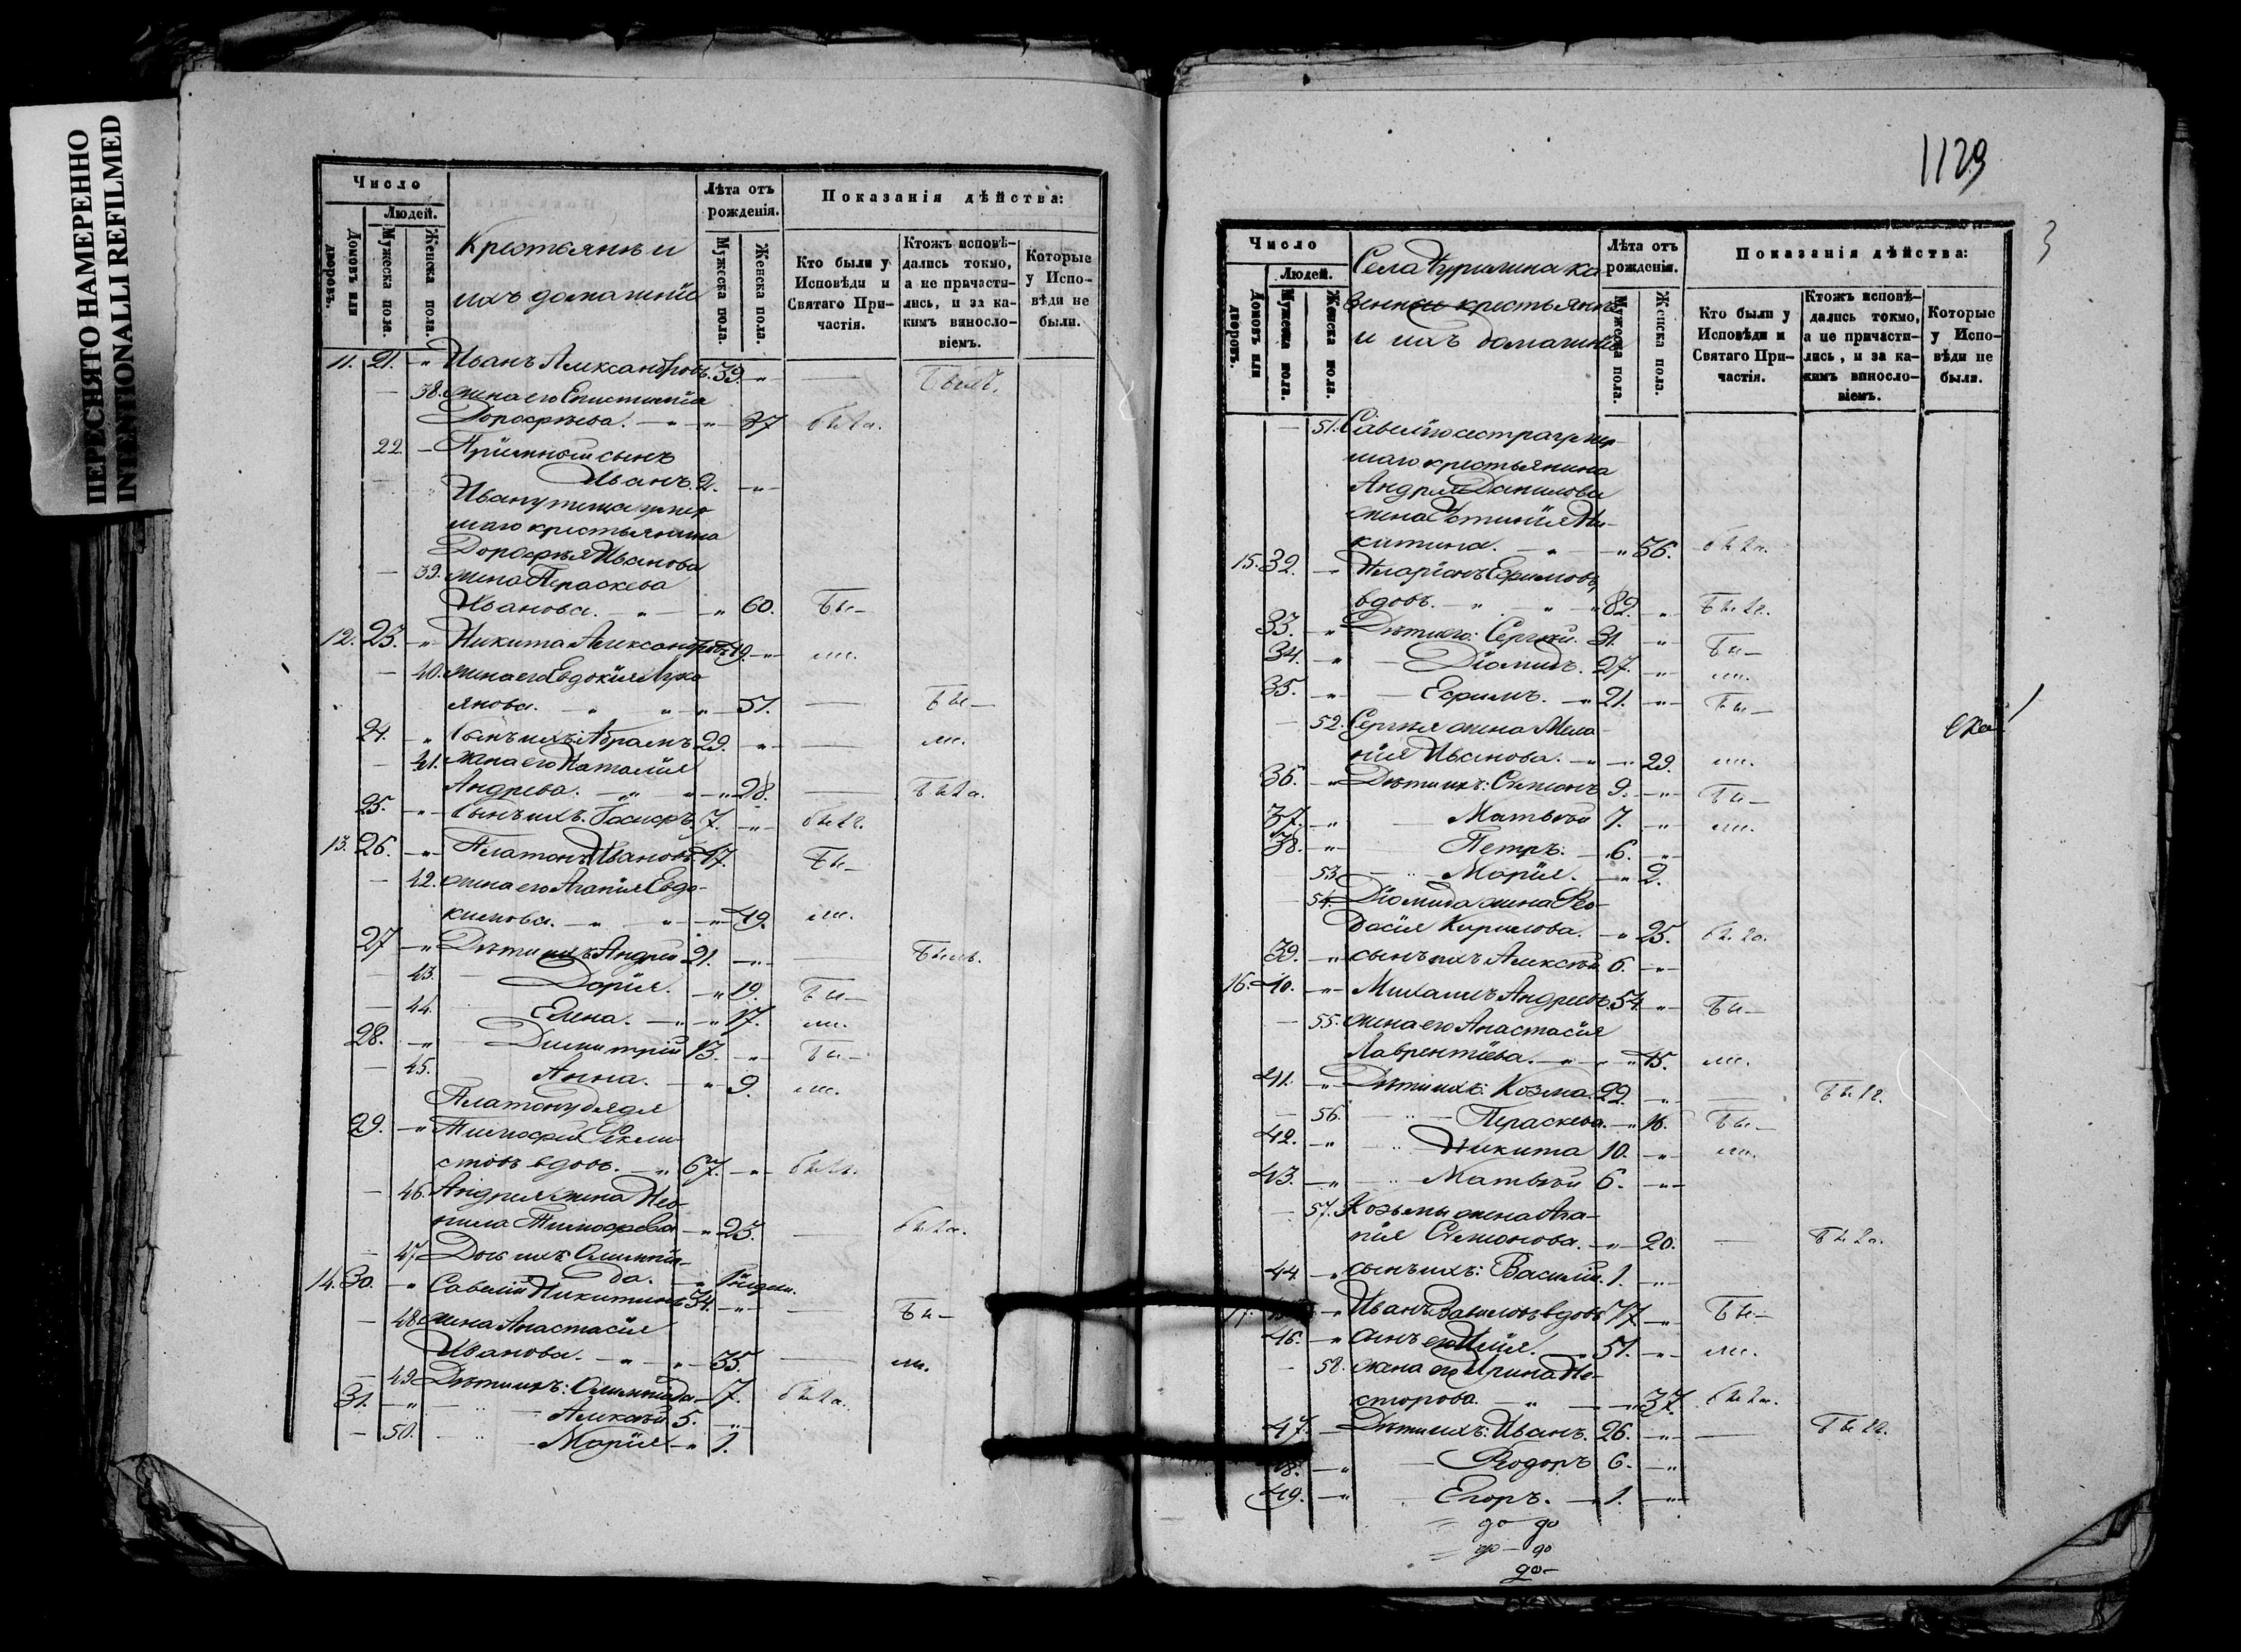 ПЕРЕСНЯТО НАМЕРЕННО
INTENTIONALLI REFILMED
Число
Людей.
Домовъ или дворовъ.
Мужеска пола.
Женска пола.
Крестьянъ и
ихъ домашніе
Лѣта отъ рожденія.
Мужеска пола.
Женска пола.
Показанія дѣйства:
Кто были у Исповѣди и Святаго Причастія.
Ктожъ исповѣдались токмо, а не причастились, и за какимъ винословіемъ.
Которые у Исповѣди не были.
11. 21. — Иванъ Александровъ. 39. — Былъ.
— 38. жена его Епистимія
Дорофѣева. — 37 была.
22. — Пріемной сынъ
Иванъ. 2. —
Ивану теща умер
шаго крестьянина
Дорофея Иванова
— 39. жена Параскева
Иванова. — 60. Бы—
12. 23. — Никита Александровъ 49. — ли.
— 40. жена его Евдокія Лукі
янова. — 51. — Бы—
24. — Сынъ ихъ: Абрамъ 29. — ли.
— 41. жена его Наталія
Андреева. — 28. — Была.
25. — Сынъ ихъ 7. — былъ.
13. 26. — Платонъ Ивановъ 47. Бы—
— 42. жена его Агапія Евдо-
кимова. — 49. ли.
27 — Дѣти ихъ Андрей 21. — Былъ.
— 43. — Дарія. — 19. Бы—
— 44. Елена. — 17. ли.
28. — Димитрій 13. — Бы—
— 45. Анна. — 9. ли.
Платону дядя
29. — Тимофей Фекли
стовъ вдовъ. — 67. — былъ.
— 46. Андрея жена Нео-
нила Тимофеева — 23. — была.
— 47. Дочь ихъ Олимпіа-
да. —
14. 30. — Савелій Никитинъ 34. — Бы—
— 48. жена Анастасія
Иванова. — 35. — ли.
— 49. Дѣти ихъ: Олимпіада — 7. была.
31. — Алексѣй 5. —
— 50. — Марія — 1.
1129
3
Число
Людей.
Домовъ или дворовъ.
Мужеска пола.
Женска пола.
Села Чурилина ка
зенны крестьянъ
и ихъ домашніе
Лѣта отъ рожденія.
Мужеска пола.
Женска пола.
Показанія дѣйства:
Кто были у Исповѣди и Святаго Причастія.
Ктожъ исповѣдались токмо, а не причастились, и за какимъ винословіемъ.
Которые у Исповѣди не были.
— 51. Савелію сестра умер
шаго крестьянина
Андрея Данилова
жена Устинія Ни-
китина. — 36. была.
15. 32. — Иларіонъ Ефимовъ,
вдовъ. — 82. — Былъ.
33. — Дѣти его: Сергѣй. 31. — Бы—
34. — Діомидъ. 27. — ли.
35. — Ефимъ. — 21. — Бы—
— 52. Сергѣя жена Мела
нія Иванова. — 29. ли.
36. — Дѣти ихъ: Симеонъ 9. — Бы—
37. — Матвѣй 7. — ли.
38. — Петръ. — 6. —
53. — Марія. — 2.
— 54. Діомида жена Ѳео-
досія Кирилова. — 25. была.
39. — сынъ ихъ Алексѣй 6. —
16. 40. — Михаилъ Андреевъ 54 — Бы—
— 55. жена его Анастасія
Лаврентіева. — 45. ли.
41. — Дѣти ихъ: Козма. 22. — Былъ.
— 56. — Параскева. — 16. Бы—
42. — Никита 10. — ли.
43. — Матвѣй 6. —
— 57. Козьмы жена Ага-
пія Симонова. — 20. — Была.
44. — сынъ ихъ: Василій. 1. —
17. 45. — Иванъ вдовъ 77 — Бы—
46. — сынъ его Илія. 51. — ли.
— 58. жена его Ирина Не-
сторова. — 37. была.
47. — Дѣти ихъ: Иванъ. 26. — Былъ.
48. — Ѳеодоръ 6. —
49. — Егоръ. — 1. —